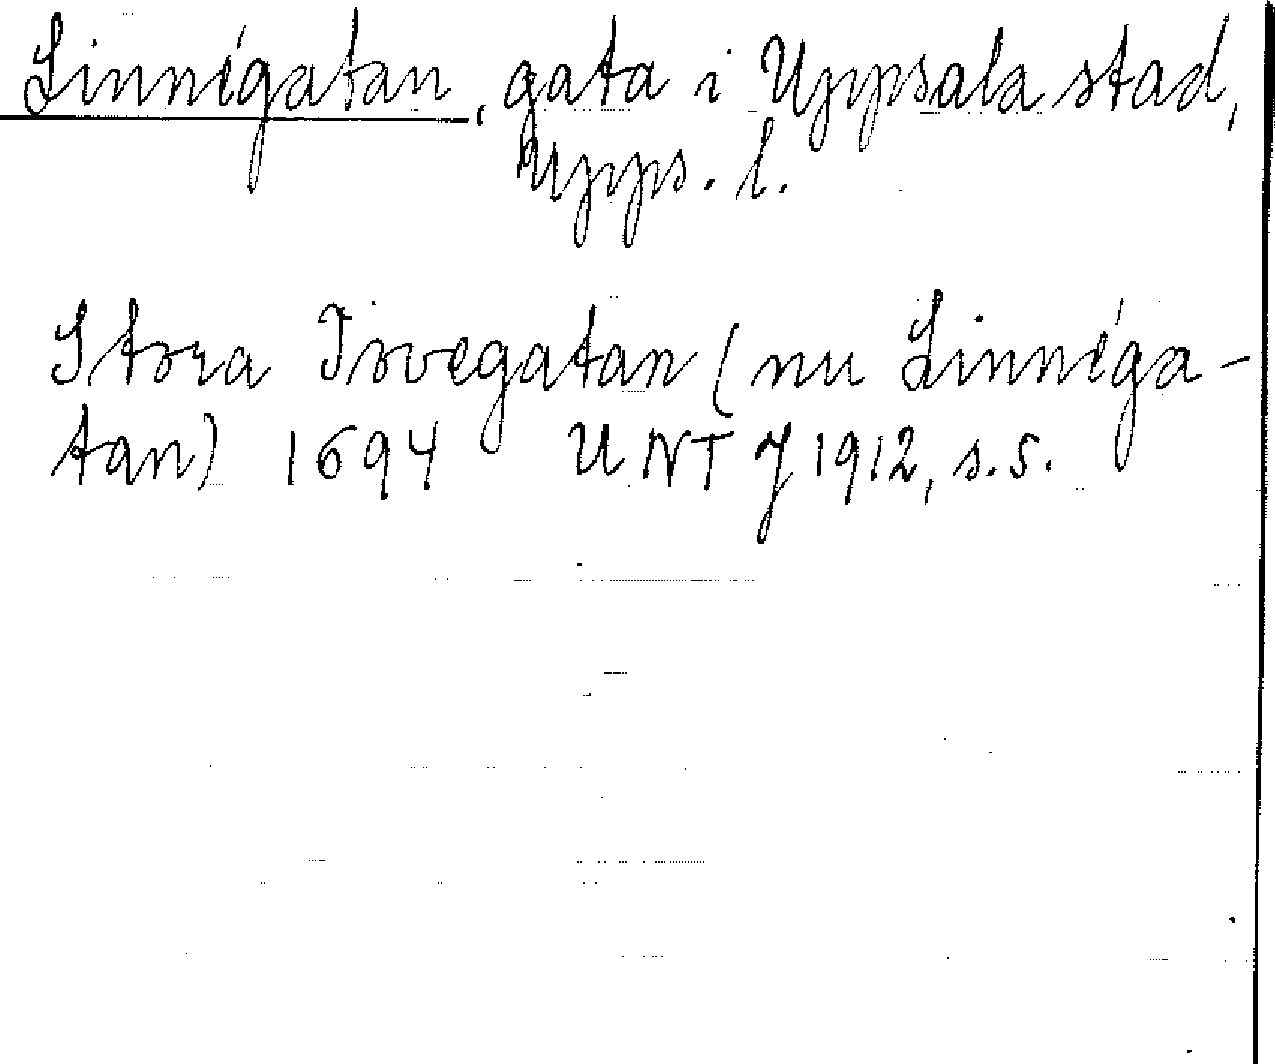 Linnégatan, gata i Uppsala stad,
Upps. l.
Stora Tovegatan (nu Linnéga-
tan) 1694 UNT J 1912, s. 5.